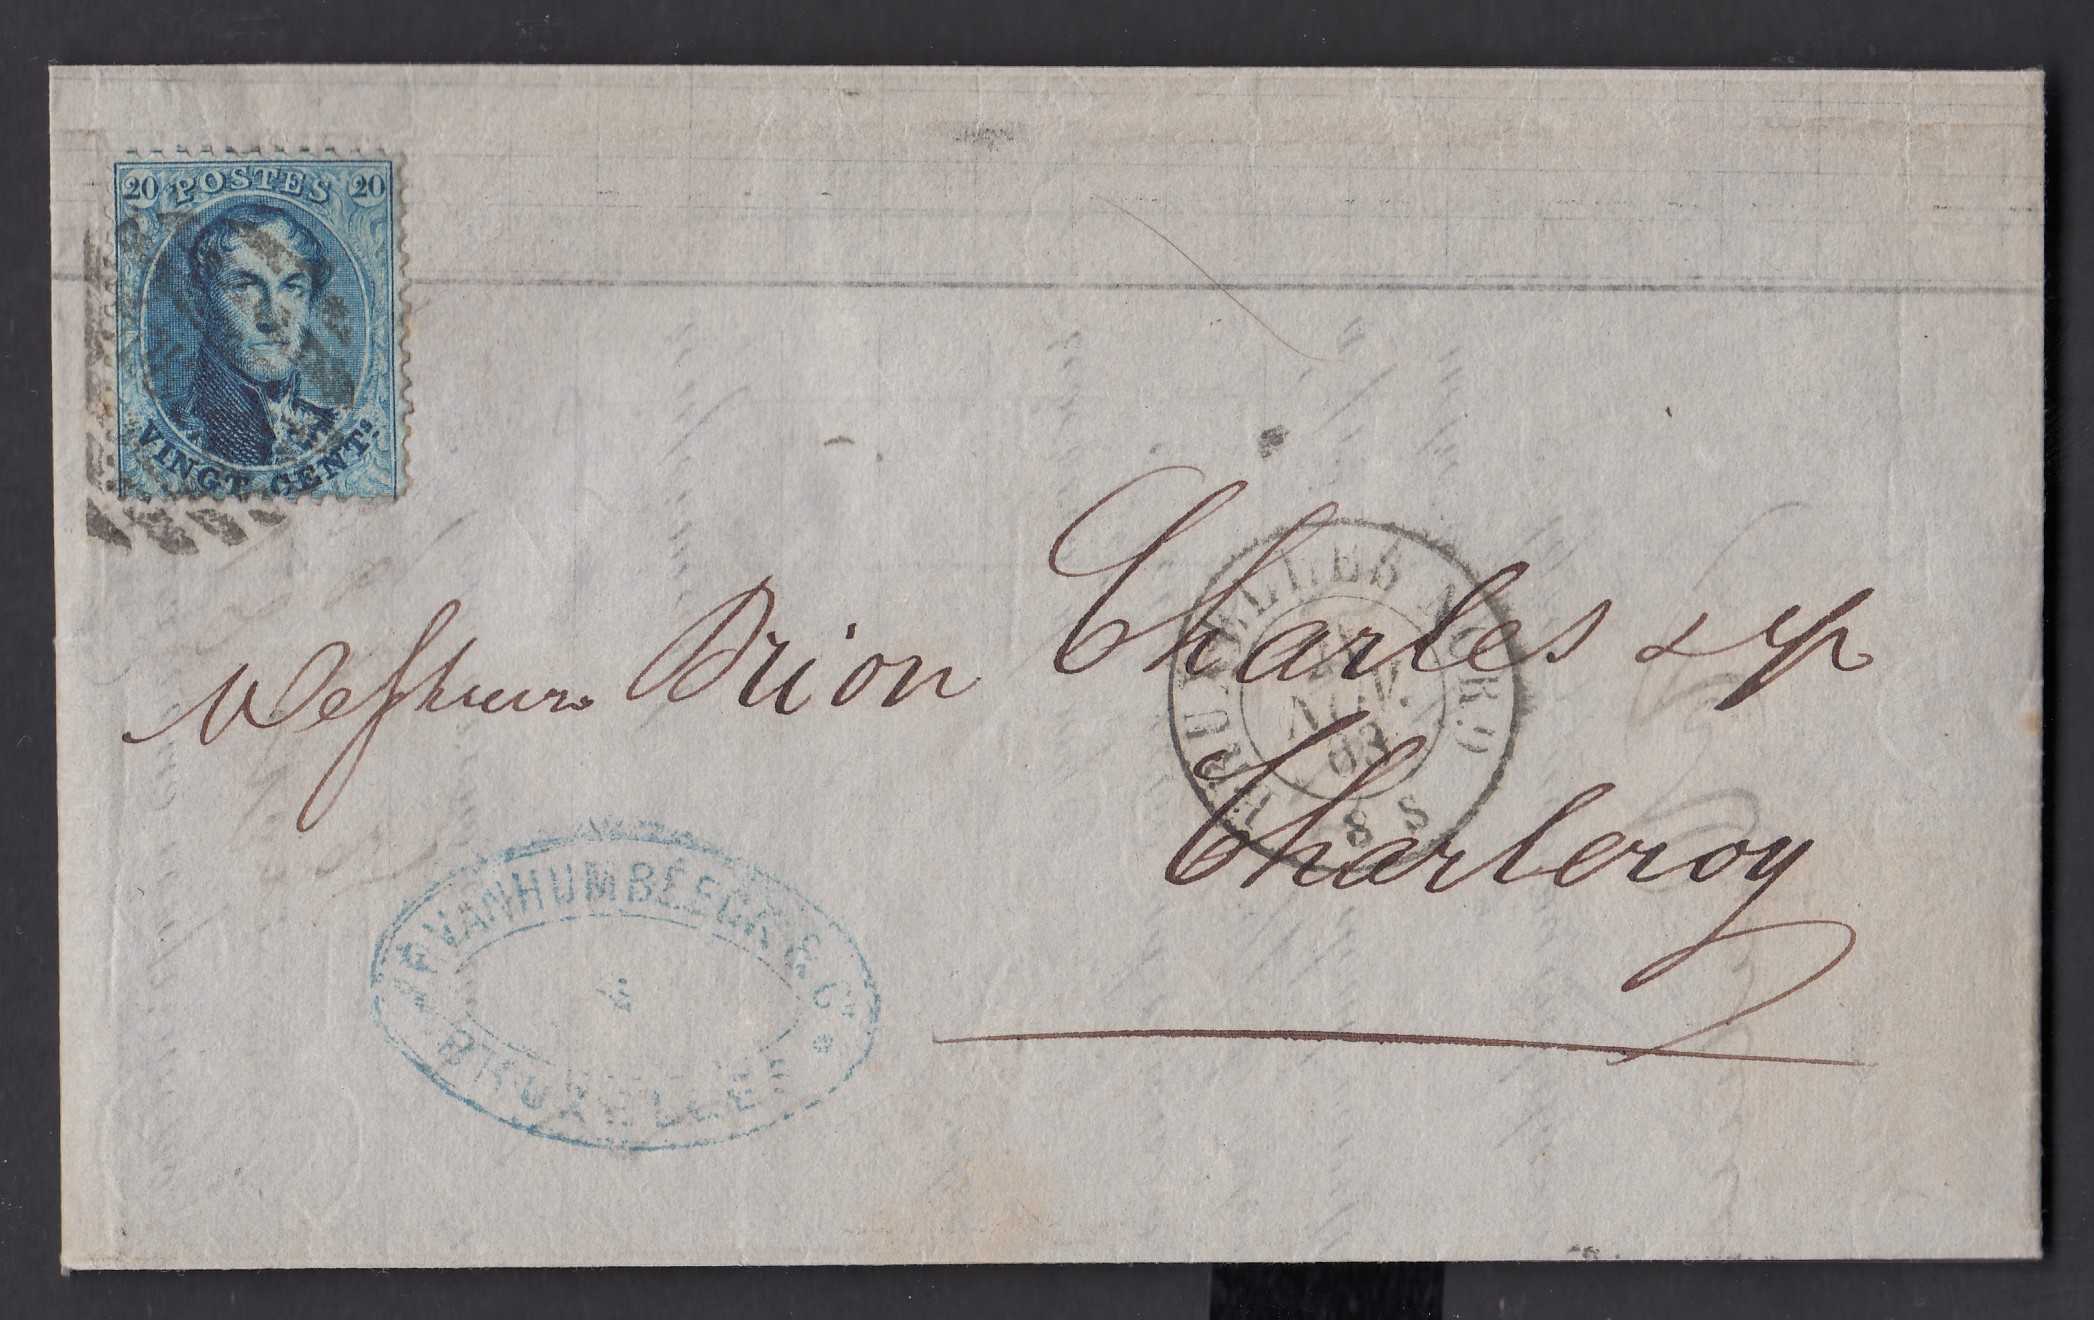 20 POSTES 20
VINGT CENTS
Messieurs Brion Charles & 
Charleroy
BRUXELLES NORD
NOV.
63
8 S
VANHUMBÉECK & Cie
BRUXELLES